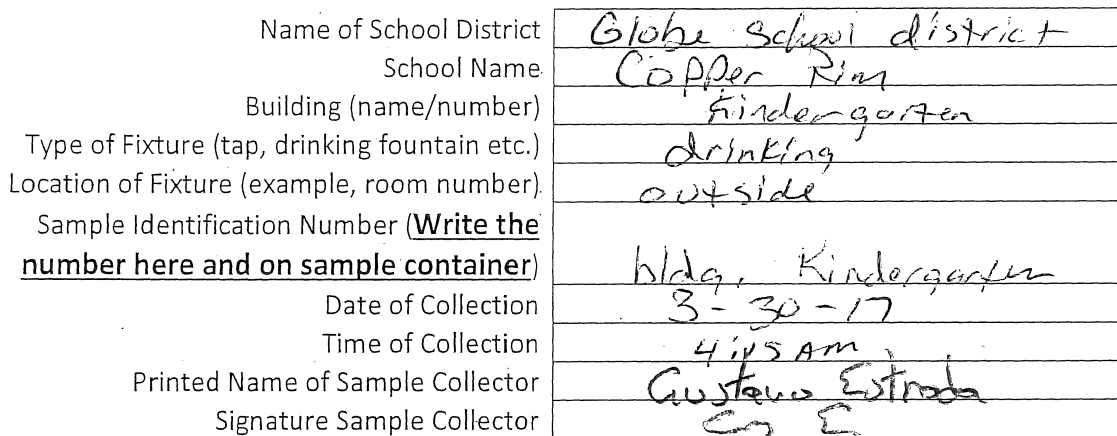 Name of School District Globe School district
School Name Copper Rim
Building (name/number) Kindergarten
Type of Fixture (tap, drinking fountain etc.) drinking
Location of Fixture (example, room number) outside
Sample Identification Number (Write the
number here and on sample container) bldg, Kindergarten
Date of Collection 3-30-17
Time of Collection AM
Printed Name of Sample Collector Gustavo Estrada
Signature Sample Collector